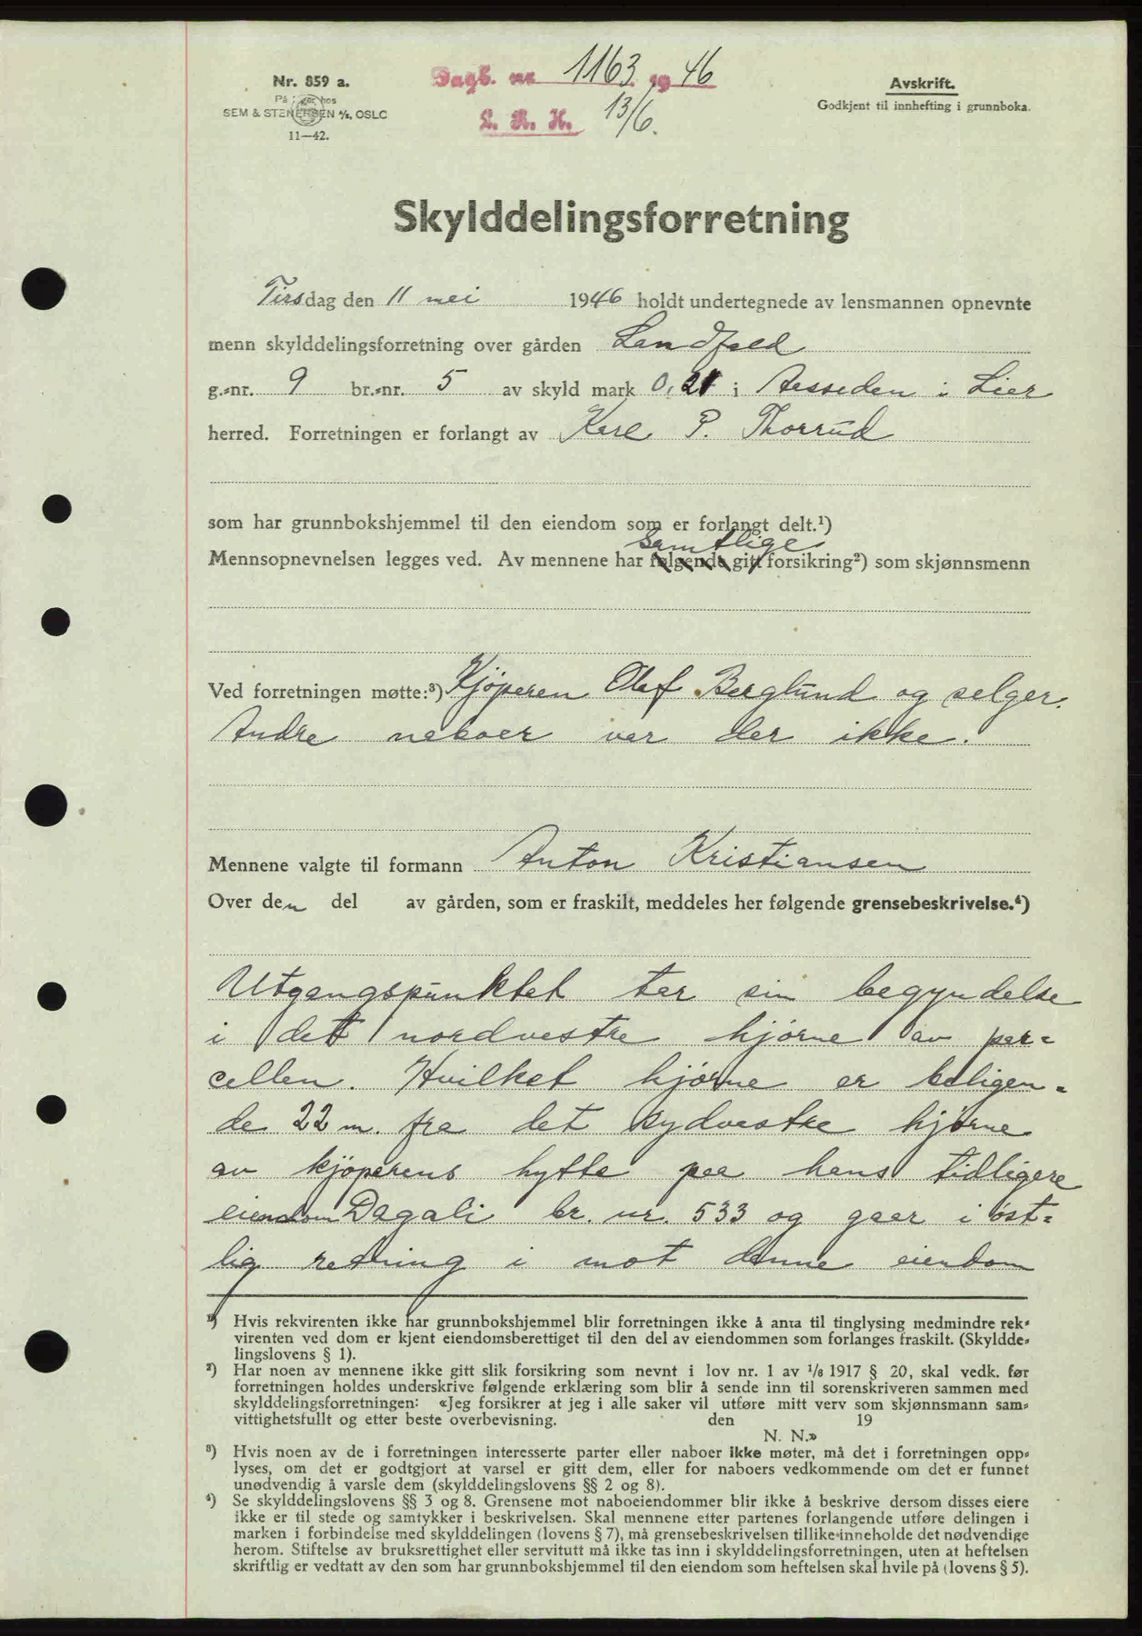 Nr. 859 a.
På lager hos
SEM & STENERSEN A/S, OSLO
11—42.
Dagb. nr. 1163 1946
L. R. K. 13/6.
Avskrift.
Godkjent til innhefting i grunnboka.
Skylddelingsforretning
Tirsdag den 11 mai 1946 holdt undertegnede av lensmannen opnevnte
menn skylddelingsforretning over gården Landfald
g.-nr. 9 br.-nr. 5 av skyld mark 0,21 i i Lier
herred. Forretningen er forlangt av Karl P. Thorrud
som har grunnbokshjemmel til den eiendom som er forlangt delt.¹)
samtlige
Mennsopnevnelsen legges ved. Av mennene har følgende gitt forsikring²) som skjønnsmenn
Ved forretningen møtte:³) Kjøperen Olaf Berglund og selger.
Andre naboer var der ikke.
Mennene valgte til formann Anton Kristiansen
Over den del av gården, som er fraskilt, meddeles her følgende grensebeskrivelse.⁴)
Utgangspunktet tar sin begyndelse
i det nordvestre hjørne av par=
cellen. Hvilket hjørne er beligen=
de 22 m. fra det sydvestre hjørne
av kjøperens hytte paa hans tidligere
eiendom Dagali br. nr. 533 og gaar i øst=
lig retning i mot denne eiendom
¹) Hvis rekvirenten ikke har grunnbokshjemmel blir forretningen ikke å anta til tinglysing medmindre rek-
virenten ved dom er kjent eiendomsberettiget til den del av eiendommen som forlanges fraskilt. (Skyldde-
lingslovens § 1).
²) Har noen av mennene ikke gitt slik forsikring som nevnt i lov nr. 1 av 1/8 1917 § 20, skal vedk. før
forretningen holdes underskrive følgende erklæring som blir å sende inn til sorenskriveren sammen med
skylddelingsforretningen: «Jeg forsikrer at jeg i alle saker vil utføre mitt verv som skjønnsmann sam-
vittighetsfullt og etter beste overbevisning. den 19
N. N.»
³) Hvis noen av de i forretningen interesserte parter eller naboer ikke møter, må det i forretningen opp-
lyses, om det er godtgjort at varsel er gitt dem, eller for naboers vedkommende om det er funnet
unødvendig å varsle dem (skylddelingslovens §§ 2 og 8).
⁴) Se skylddelingslovens §§ 3 og 8. Grensene mot naboeiendommer blir ikke å beskrive dersom disses eiere
ikke er til stede og samtykker i beskrivelsen. Skal mennene etter partenes forlangende utføre delingen i
marken i forbindelse med skylddelingen (lovens § 7), må grensebeskrivelsen tillike inneholde det nødvendige
herom. Stiftelse av bruksrettighet eller servitutt må ikke tas inn i skylddelingsforretningen, uten at heftelsen
skriftlig er vedtatt av den som har grunnbokshjemmel til den eiendom som heftelsen skal hvile på (lovens § 5).